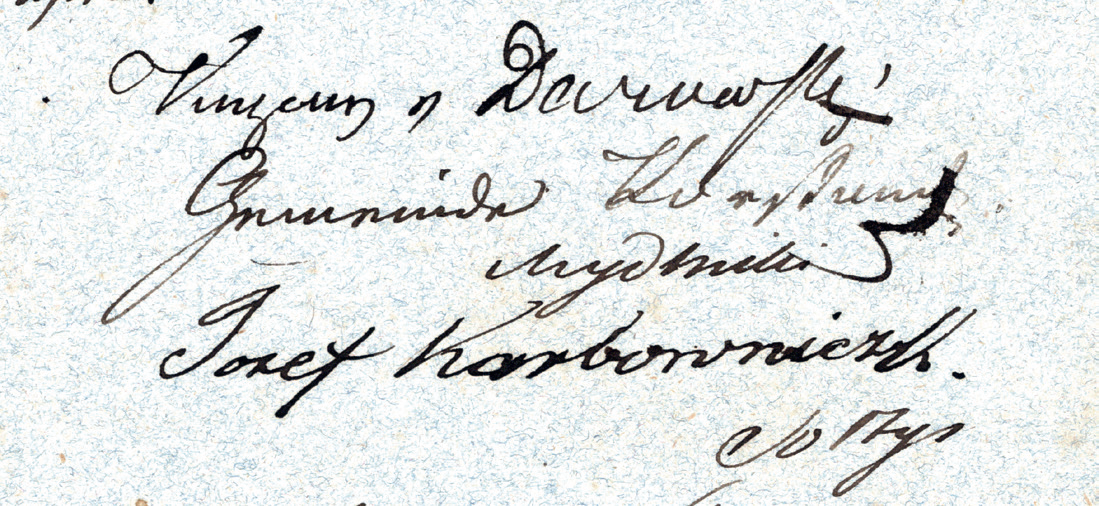 Vinzenty Darowski
Gemeinde Vorstand
Mydlniki
Jozef Karbowniczek.
Sołtys